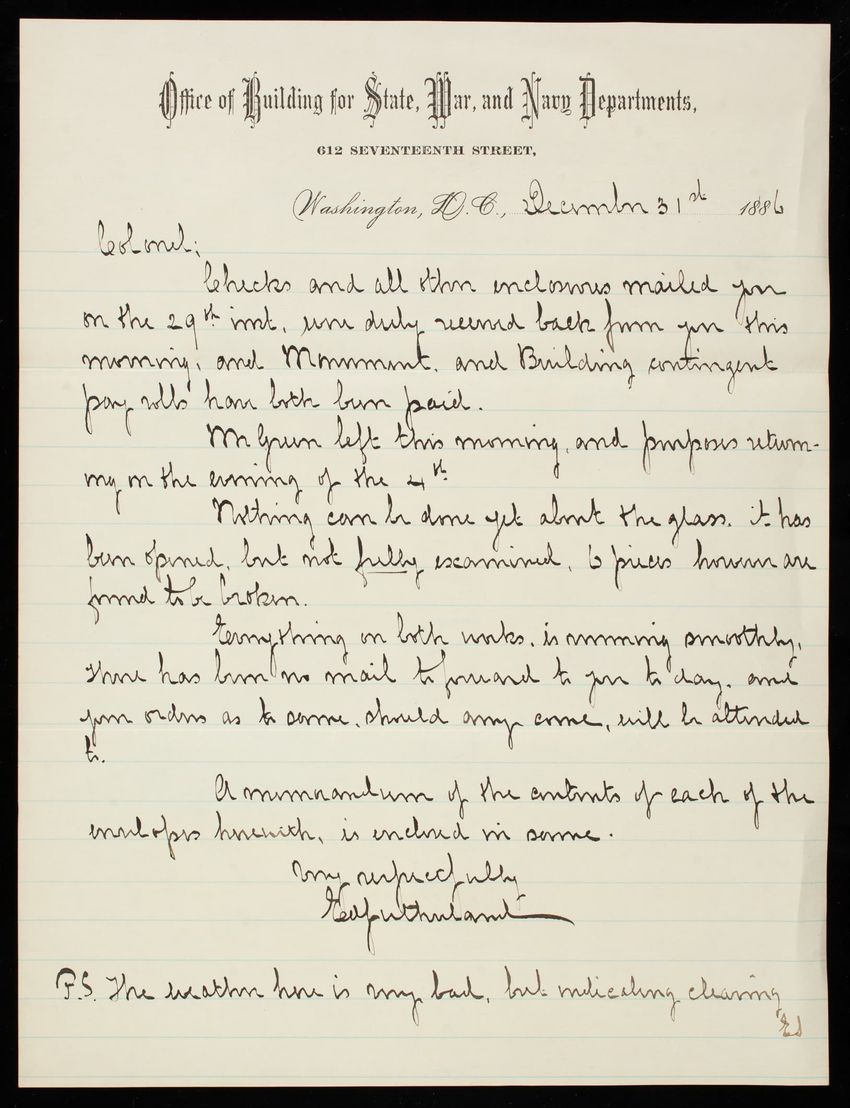 Office of Building for State, War, and Navy Departments,
612 SEVENTEENTH STREET,
Washington, D.C., December 31st 1886
Colonel;
Checks and all other enclosures mailed you
on the 29th inst. were duly received back from you this
morning, and Monument, and Building contingent
pay rolls have both been paid.
Mr Green left this morning, and purposes return-
ing on the evening of the 4th
Nothing can be done yet about the glass. it has
been opened, but not fully examined, 6 pieces however are
found to be broken.
Everything on both works, is running smoothly,
there has been no mail to forward to you to day, and
your orders as to same, should any come, will be attended
to.
A memorandum of the contents of each of the
envelopes herewith, is enclosed in same.
Very respectfully
P.S. The weather here is very bad, but indicating clearing
Ed